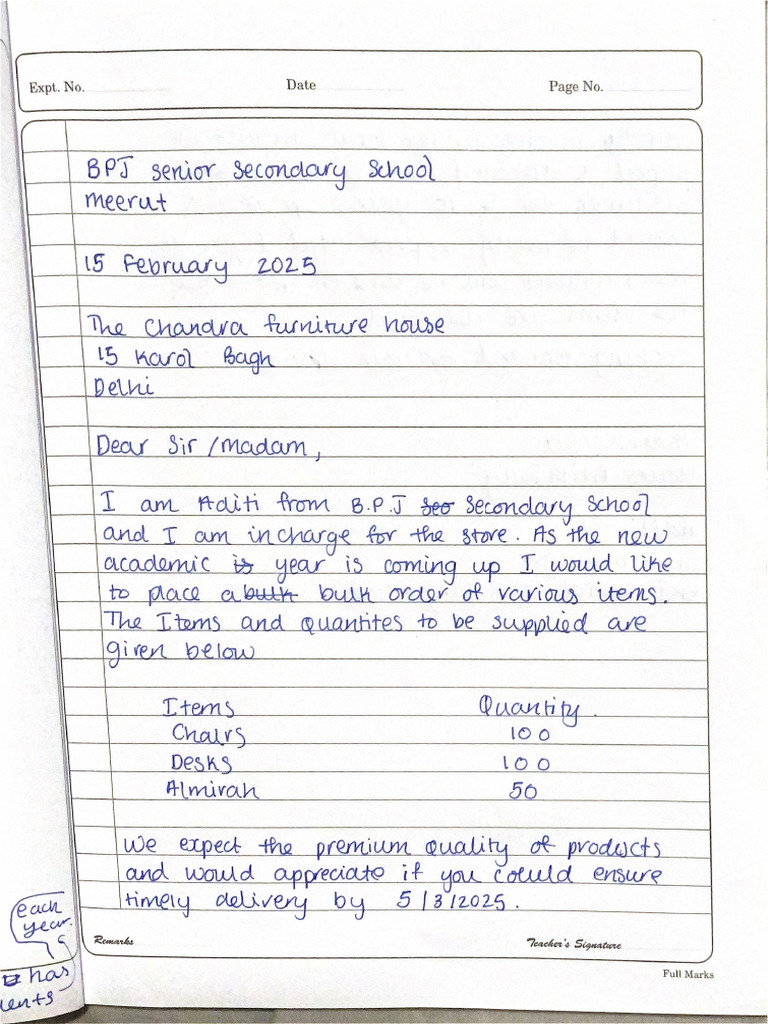 Expt. No. Date Page No.
BPJ senior secondary school
meerut
15 February 2025
The Chandra furniture house
15 Karol Bagh
Delhi
Dear Sir /madam,
I am Aditi from B.P.J seo secondary school
and I am incharge for the store. As the new
academic is year is coming up I would like
to place a bulk bulk order of various items.
The Items and Quantites to be supplied are
given below
Items Quantity.
Chairs 100
Desks 100
Almirah 50
We expect the premium quality of products
and would appreciate if you could ensure
timely delivery by 5/3/2025.
each
year.
has
ents
Remarks Teacher's Signature
Full Marks